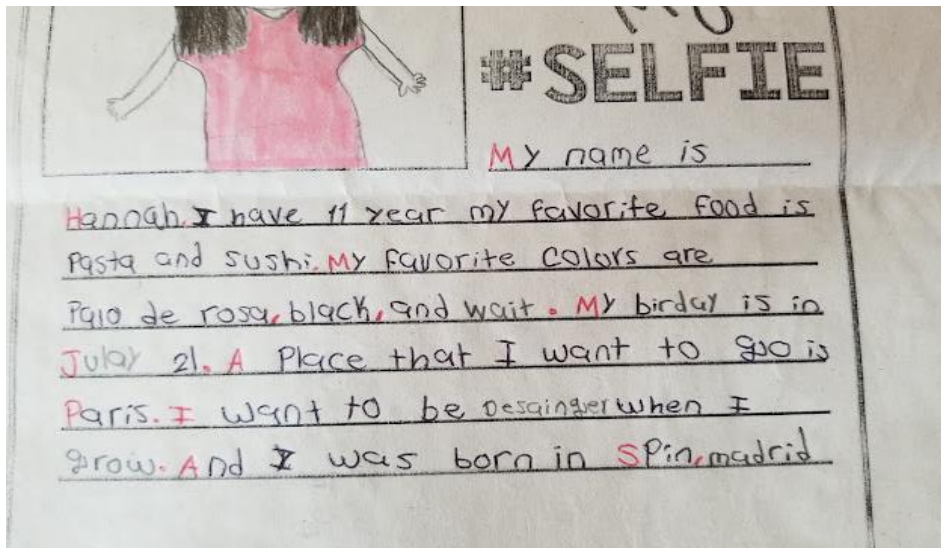 My
#SELFIE
My name is
Hannah. I have 11 year my favorite food is
Pasta and sushi. My favorite colors are
Palo de rosa, black, and wait. My birday is in
Julay 21. A Place that I want to goo is
Paris. I want to be Desainger when I
grow. And I was born in SPin, madrid